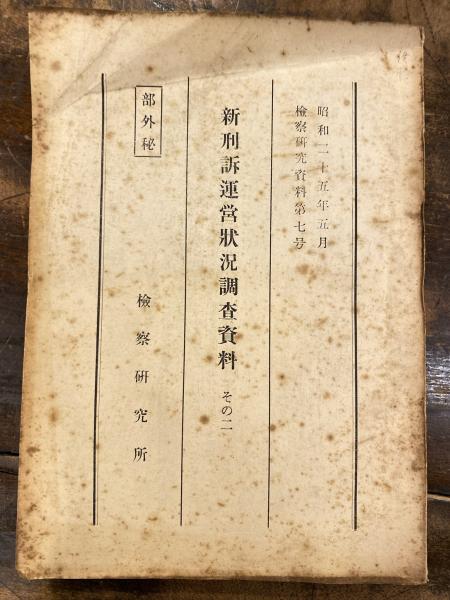 昭和二十五年五月
檢察硏究資料第七号
新刑訴運営狀况調査資料 その二
部外秘
檢察硏究所